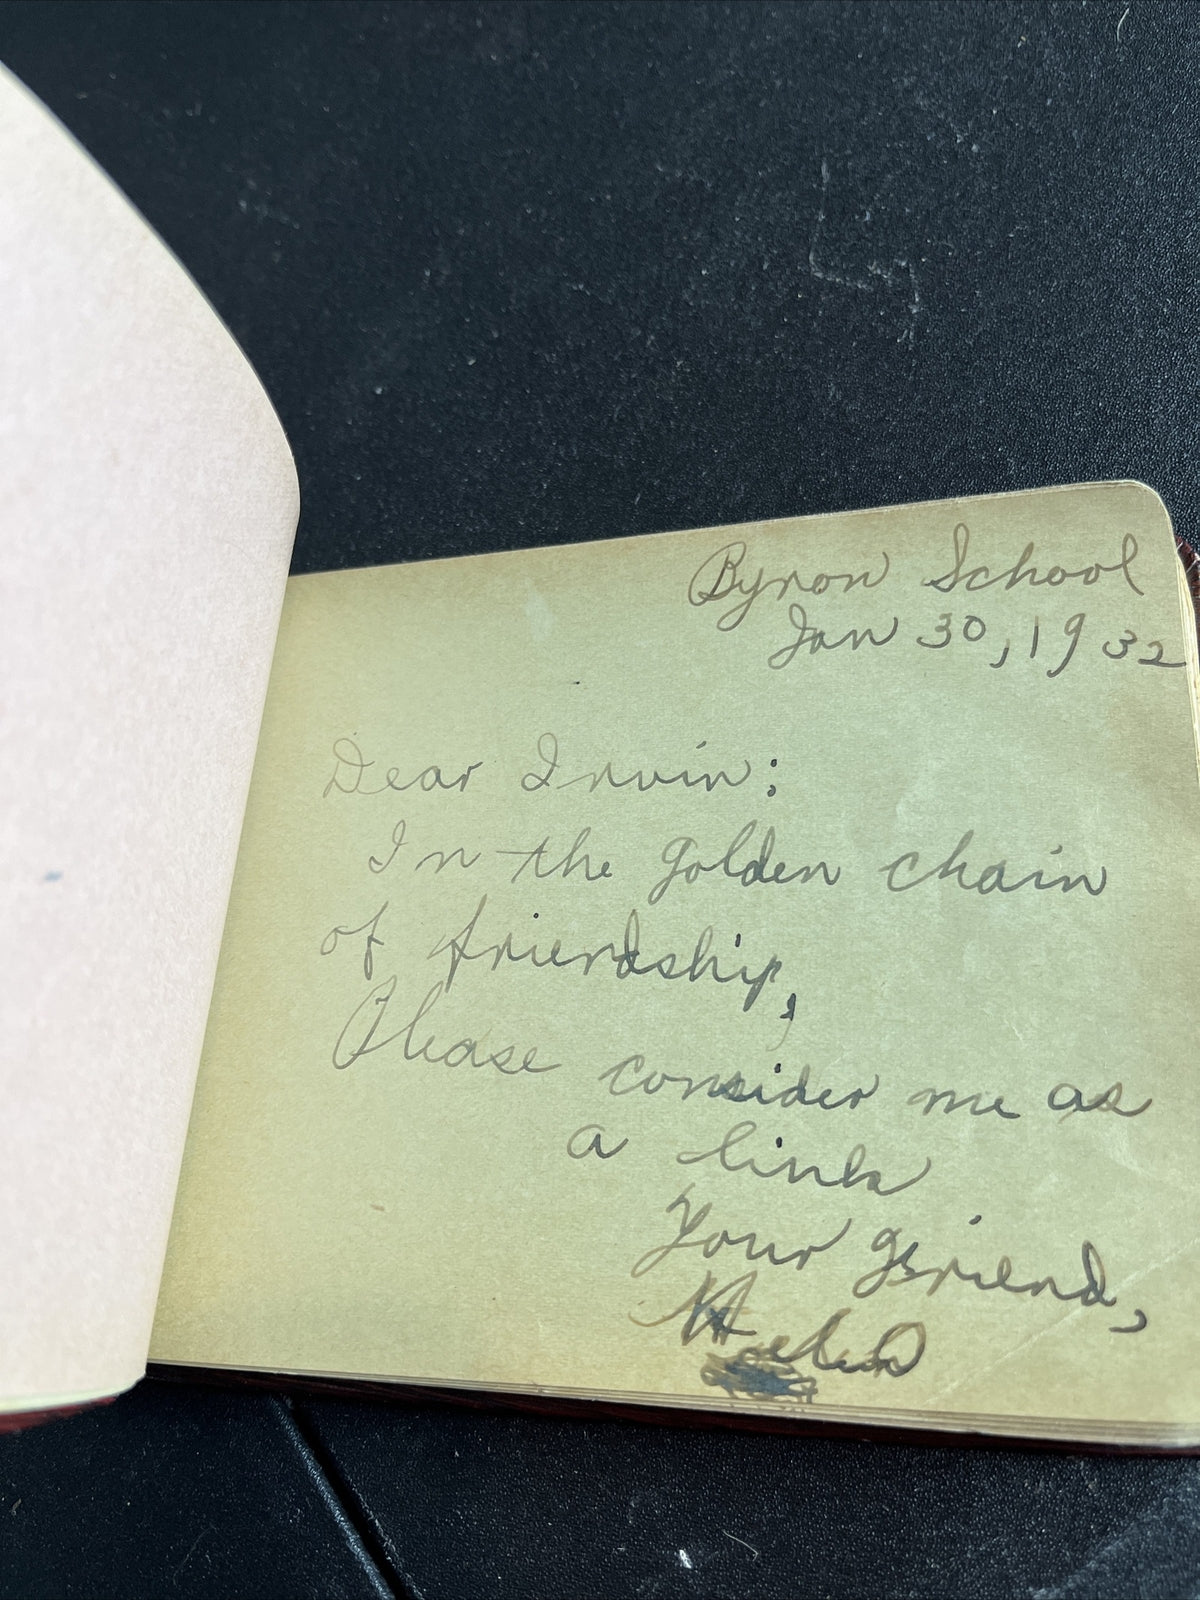 Byron School
Jan 30, 1932
Dear Irvin:
In the golden chain
of friendship,
Please consider me as
a link
Your friend,
Helen